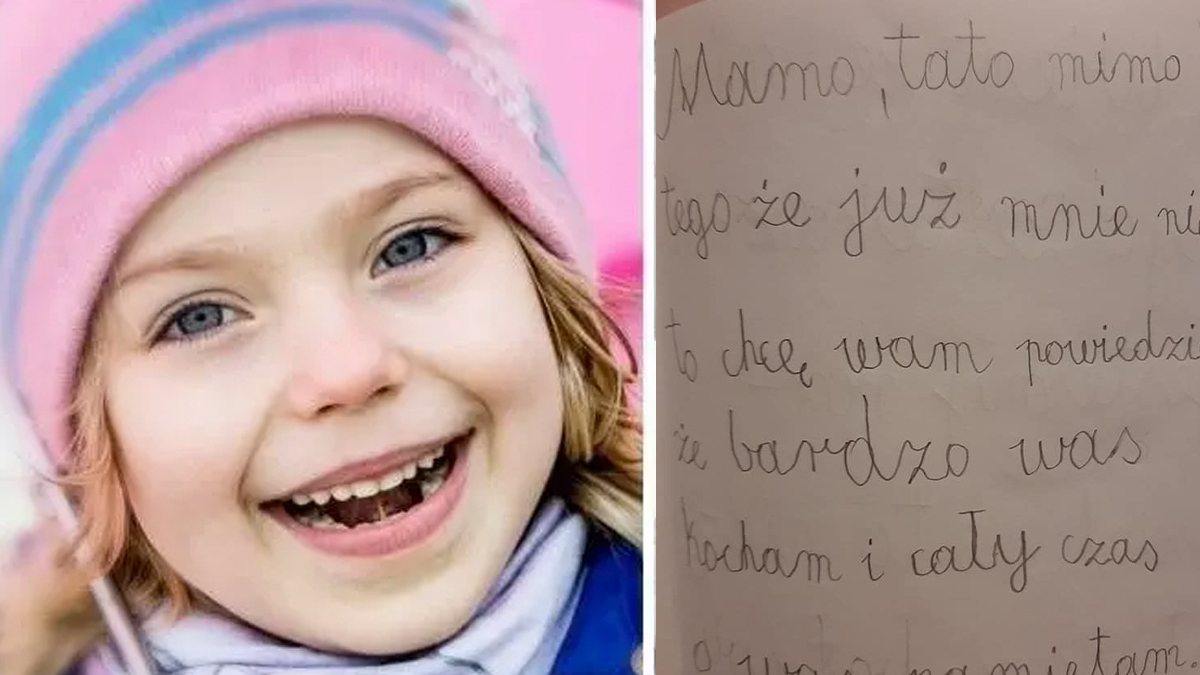 Mamo, tato mimo
tego że już mnie ni
to chcę wam powiedzi
że bardzo was
kocham i cały czas
o was pamiętam.